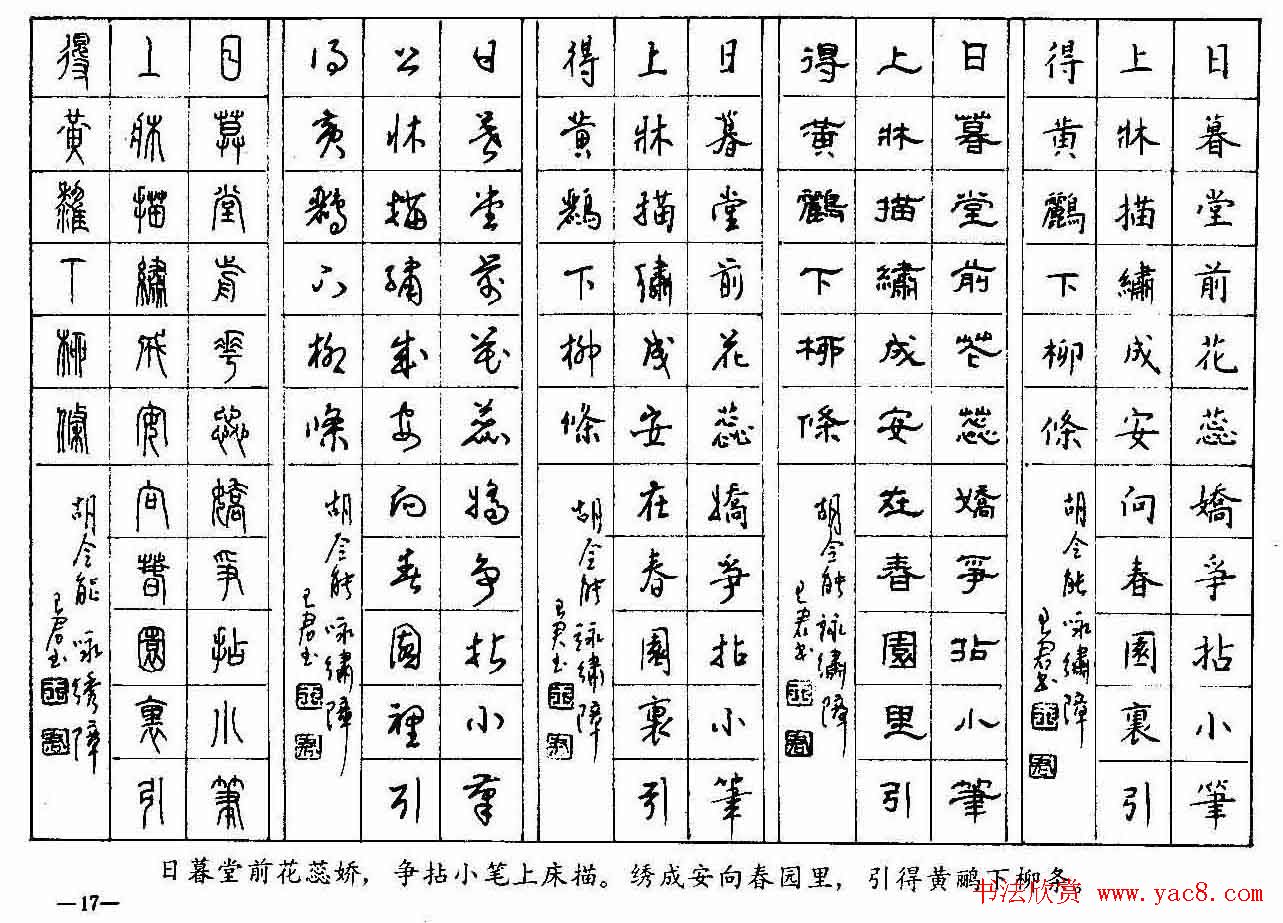 日暮堂前花蕊嬌爭拈小筆
上牀描繡成安向春園裏引
得黃鸝下柳條
胡令能咏繡障
王君書
日暮堂前花蕊嬌爭拈小筆
上牀描繡成安在春園里引
得黃鸝下柳條
胡令能詠繡障
王君書
日暮堂前花蕊嬌爭拈小筆
上牀描繡成安在春園裏引
得黃下柳條
胡令能詠繡障
王君书
日暮堂前花蕊嬌争拈小筆
上牀描繡成安向春園裡引
得黃下柳條
胡令能咏繡障
王君书
日暮堂前華蕊嬌爭拈小筆
上牀描繡成安向春園裏引
得黃下柳條
胡令能咏绣障
王君书
日暮堂前花蕊娇，争拈小笔上床描。绣成安向春园里，引得黄鹂下柳条。
—17—
书法欣赏 www.yac8.com